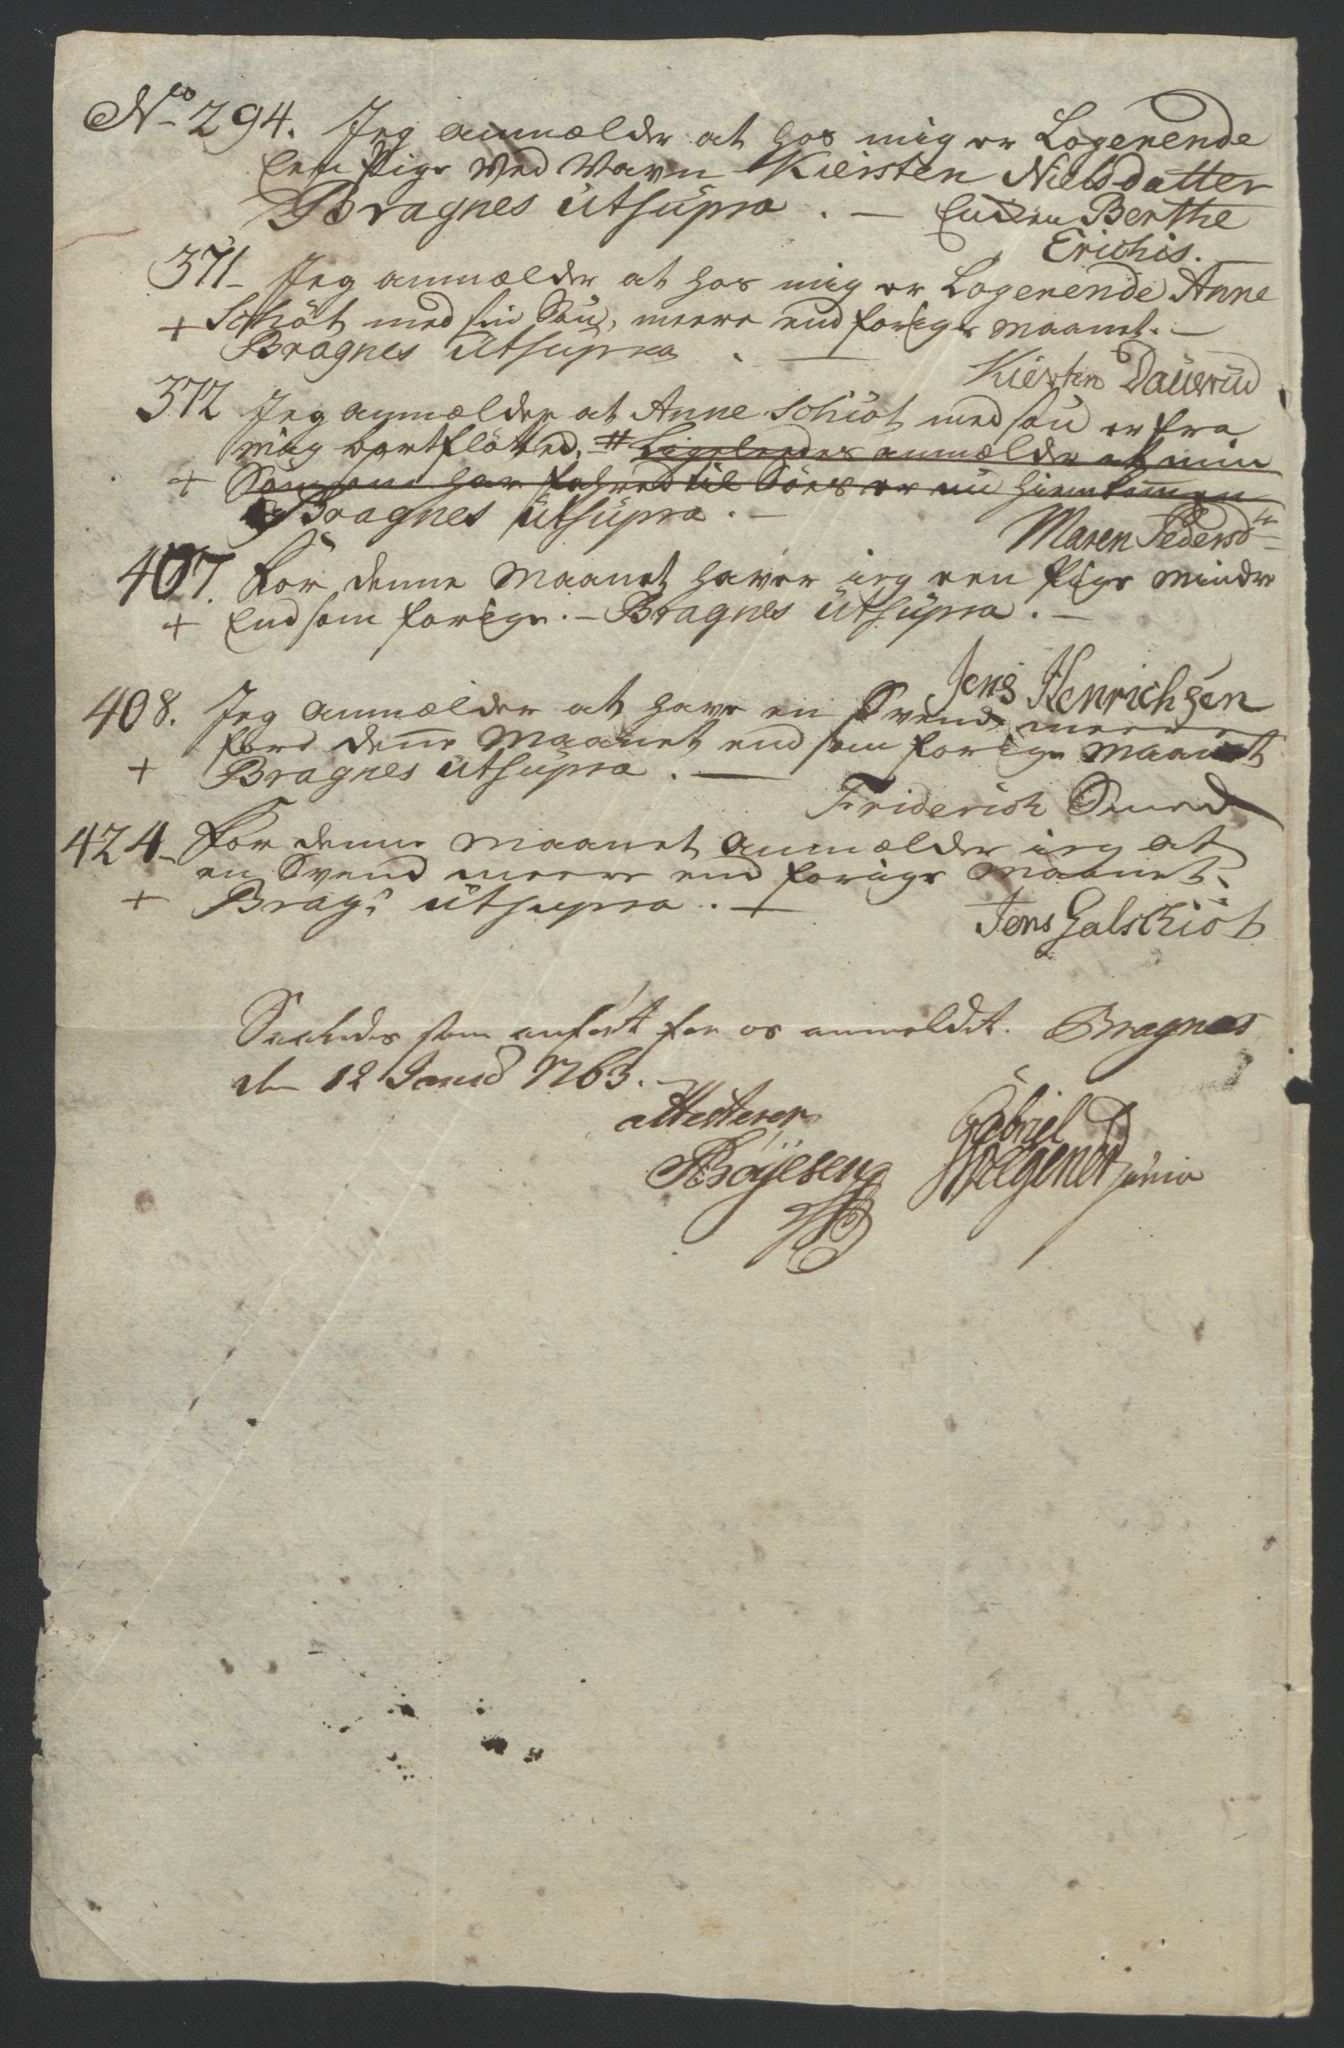 No 294. Jeg anmælder at hos mig er Logerende
Een Pige Ved Navn Kiersten Nielsdatter
Bragnes utsupra. — Enken Berthe
Erichis.
371 - Jeg anmælder at hos mig er Logerende Anne
+ Schöt med sin Sön, meere end forige maanet. —
Bragnes utsupra. —
Kiersten Dauerud
372 Jeg anmælder at Anne Schiöt med sön er fra
mig bortflötted, # Ligeleedes anmælde at min
+ Sön som har fahred til Söes er nu hiemkommen
Bragnes utsupra. —
Maren Pedersdtr
407. For denne Maanet haver ieg een Pige mindre
+ End som forige. — Bragnes utsupra. —
Jens Henrichsen
408. Jeg anmælder at have en Svend meere
fore denne Maanet end som forige Maanet
+ Bragnes utsupra. —
Friderich Smed
424 - For denne maanet anmælder ieg at
en Svend meere end forige Maanet.
+ Brags utsupra. —
Jens Galschiöt
Saaledes som anfört for os anmeldet. Bragnes
den 12 Junii 1763. —
attesterer
Böyesen Gabriel
Wegener junior